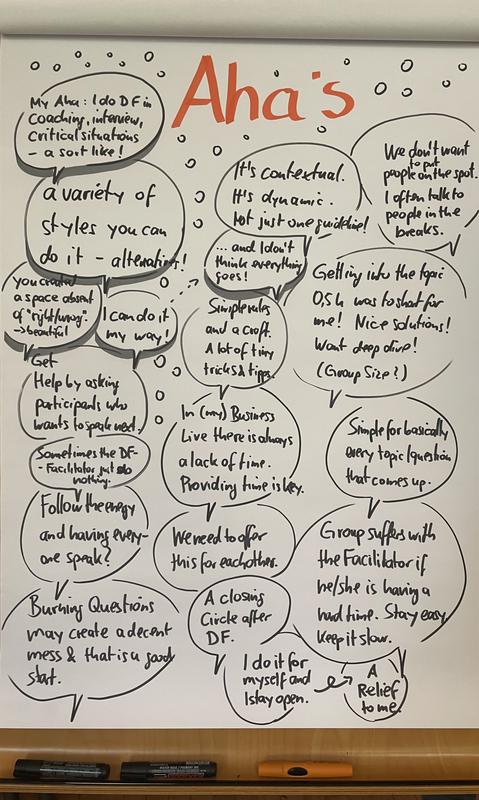 Aha's
My Aha: I do DF in
Coaching, interview,
Critical situations
- a sort like!
a variety of
styles you can
do it - alternating!
you created
a space absent
of "right/wrong".
-> beautiful
I can do it
my way!
Get
Help by asking
participants who
wants to speak next.
Sometimes the DF-
- Facilitator just do
nothing.
Follow the energy
and having every-
one speak?
Burning Questions
may create a decent
mess & that is a good
start.
It's contextual.
It's dynamic.
Not just one guideline!
... and I don't
think everything
goes!
Simple rules
and a craft.
A lot of tiny
tricks & tipps.
In (my) Business
Live there is always
a lack of time.
Providing time is key.
We need to offer
this for eachother.
A closing
Circle after
DF.
I do it for
myself and
I stay open.
A
Relief
to me.
We don't want
to put
people on the spot.
I often talk to
people in the
breaks.
Getting into the topic
0,5h was to short for
me! Nice solutions!
Want deep dive!
(Group Size?)
Simple for basically
every topic/question
that comes up.
Group suffers with
the Facilitator if
he/she is having a
hard time. Stay easy
Keep it slow.